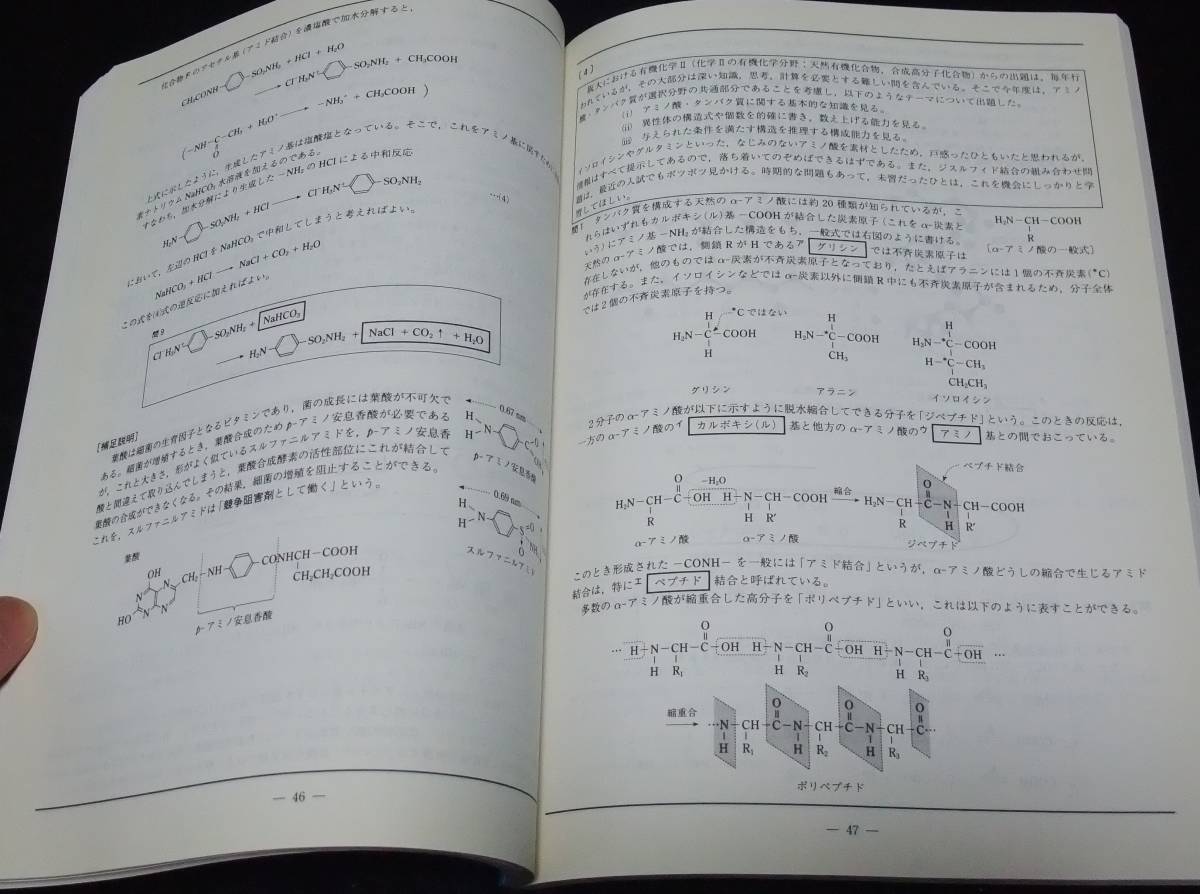 化合物Fのアセチル基(アミド結合)を濃塩酸で加水分解すると,
CH₃CONH SO₂NH₂ + HCl + H₂O
Cl⁻H₃N⁺ SO₂NH₂ + CH₃COOH
−NH−C−CH₃ + H₃O⁺ −NH₃⁺ + CH₃COOH
O
上式に示したように,生成したアミノ基は塩酸塩となっている。そこで,これをアミノ基に戻すため
素ナトリウムNaHCO₃水溶液を加えるのである。
すなわち,加水分解により生成した−NH₂のHClによる中和反応
H₂N SO₂NH₂ + HCl → Cl⁻H₃N⁺ SO₂NH₂ …(4)
において,左辺のHClをNaHCO₃で中和してしまうと考えればよい。
NaHCO₃ + HCl → NaCl + CO₂ + H₂O
この式を(4)式の逆反応に加えればよい。
問9
Cl⁻H₃N⁺ SO₂NH₂ + NaHCO₃
→ H₂N SO₂NH₂ + NaCl + CO₂↑ + H₂O
[補足説明]
葉酸は細菌の生育因子となるビタミンであり,菌の成長には葉酸が不可欠で
ある。細菌が増殖するとき,葉酸合成のためp-アミノ安息香酸が必要である
が,これと大きさ,形がよく似ているスルファニルアミドを,p-アミノ安息香
酸と間違えて取り込んでしまうと,葉酸合成酵素の活性部位にこれが結合して
葉酸の合成ができなくなる。その結果,細菌の増殖を阻止することができる。
これを,スルファニルアミドは「競争阻害剤として働く」という。
0.67 nm
H
N
H
C
O
p-アミノ安息香酸
0.69 nm
H
N
H
S=O
O
スルファニルアミド
葉酸
OH
N N CH₂−NH CONHCH−COOH
HO N N CH₂CH₂COOH
p-アミノ安息香酸
— 46 —
[4]
阪大における有機化学Ⅱ(化学Ⅱの有機化学分野:天然有機化合物,合成高分子化合物)からの出題は,毎年行
われているが,その大部分は深い知識,思考,計算を必要とする難しい問を含んでいる。そこで今年度は,アミノ
酸・タンパク質が選択分野の共通部分であることを考慮し,以下のようなテーマについて出題した。
(i) アミノ酸・タンパク質に関する基本的な知識を見る。
(ii) 異性体の構造式や個数を的確に書き,数え上げる能力を見る。
(iii) 与えられた条件を満たす構造を推理する構成能力を見る。
イソロイシンやグルタミンといった,なじみのないアミノ酸を素材としたため,戸惑ったひともいたと思われるが,
情報はすべて提示してあるので,落ち着いてのぞめばできるはずである。また,ジスルフィド結合の組み合わせ問
題は,最近の入試でもポツポツ見かける。時期的な問題もあって,未習だったひとは,これを機会にしっかりと学
習してほしい。
問1 タンパク質を構成する天然のα-アミノ酸には約20種類が知られているが,こ
れらはいずれもカルボキシ(ル)基−COOHが結合した炭素原子(これをα-炭素と
いう)にアミノ基−NH₂が結合した構造をもち,一般式では右図のように書ける。
天然のα-アミノ酸では,側鎖RがHであるア グリシン では不斉炭素原子は
存在しないが,他のものではα-炭素が不斉炭素原子となっており,たとえばアラニンには1個の不斉炭素(*C)
が存在する。また,イソロイシンなどではα-炭素以外に側鎖R中にも不斉炭素原子が含まれるため,分子全体
では2個の不斉炭素原子を持つ。
H₂N−CH−COOH
R
〔α-アミノ酸の一般式〕
H *Cではない
H₂N−C−COOH
H
グリシン
H
H₂N−*C−COOH
CH₃
アラニン
H
H₂N−*C−COOH
H−*C−CH₃
CH₂CH₃
イソロイシン
2分子のα-アミノ酸が以下に示すように脱水縮合してできる分子を「ジペプチド」という。このときの反応は,
一方のα-アミノ酸のイ カルボキシ(ル) 基と他方のα-アミノ酸のウ アミノ 基との間でおこっている。
ペプチド結合
O −H₂O O
H₂N−CH−C−OH H−N−CH−COOH 縮合 H₂N−CH−C−N−CH−COOH
R H R′ R H R′
α-アミノ酸 α-アミノ酸 ジペプチド
このとき形成された −CONH− を一般には「アミド結合」というが,α-アミノ酸どうしの縮合で生じるアミド
結合は,特にエ ペプチド 結合と呼ばれている。
多数のα-アミノ酸が縮重合した高分子を「ポリペプチド」といい,これは以下のように表すことができる。
O O O
… H−N−CH−C−OH H−N−CH−C−OH H−N−CH−C−OH …
H R₁ H R₂ H R₃
縮重合
O O O
…N−CH−C−N−CH−C−N−CH−C…
H R₁ H R₂ H R₃
ポリペプチド
— 47 —